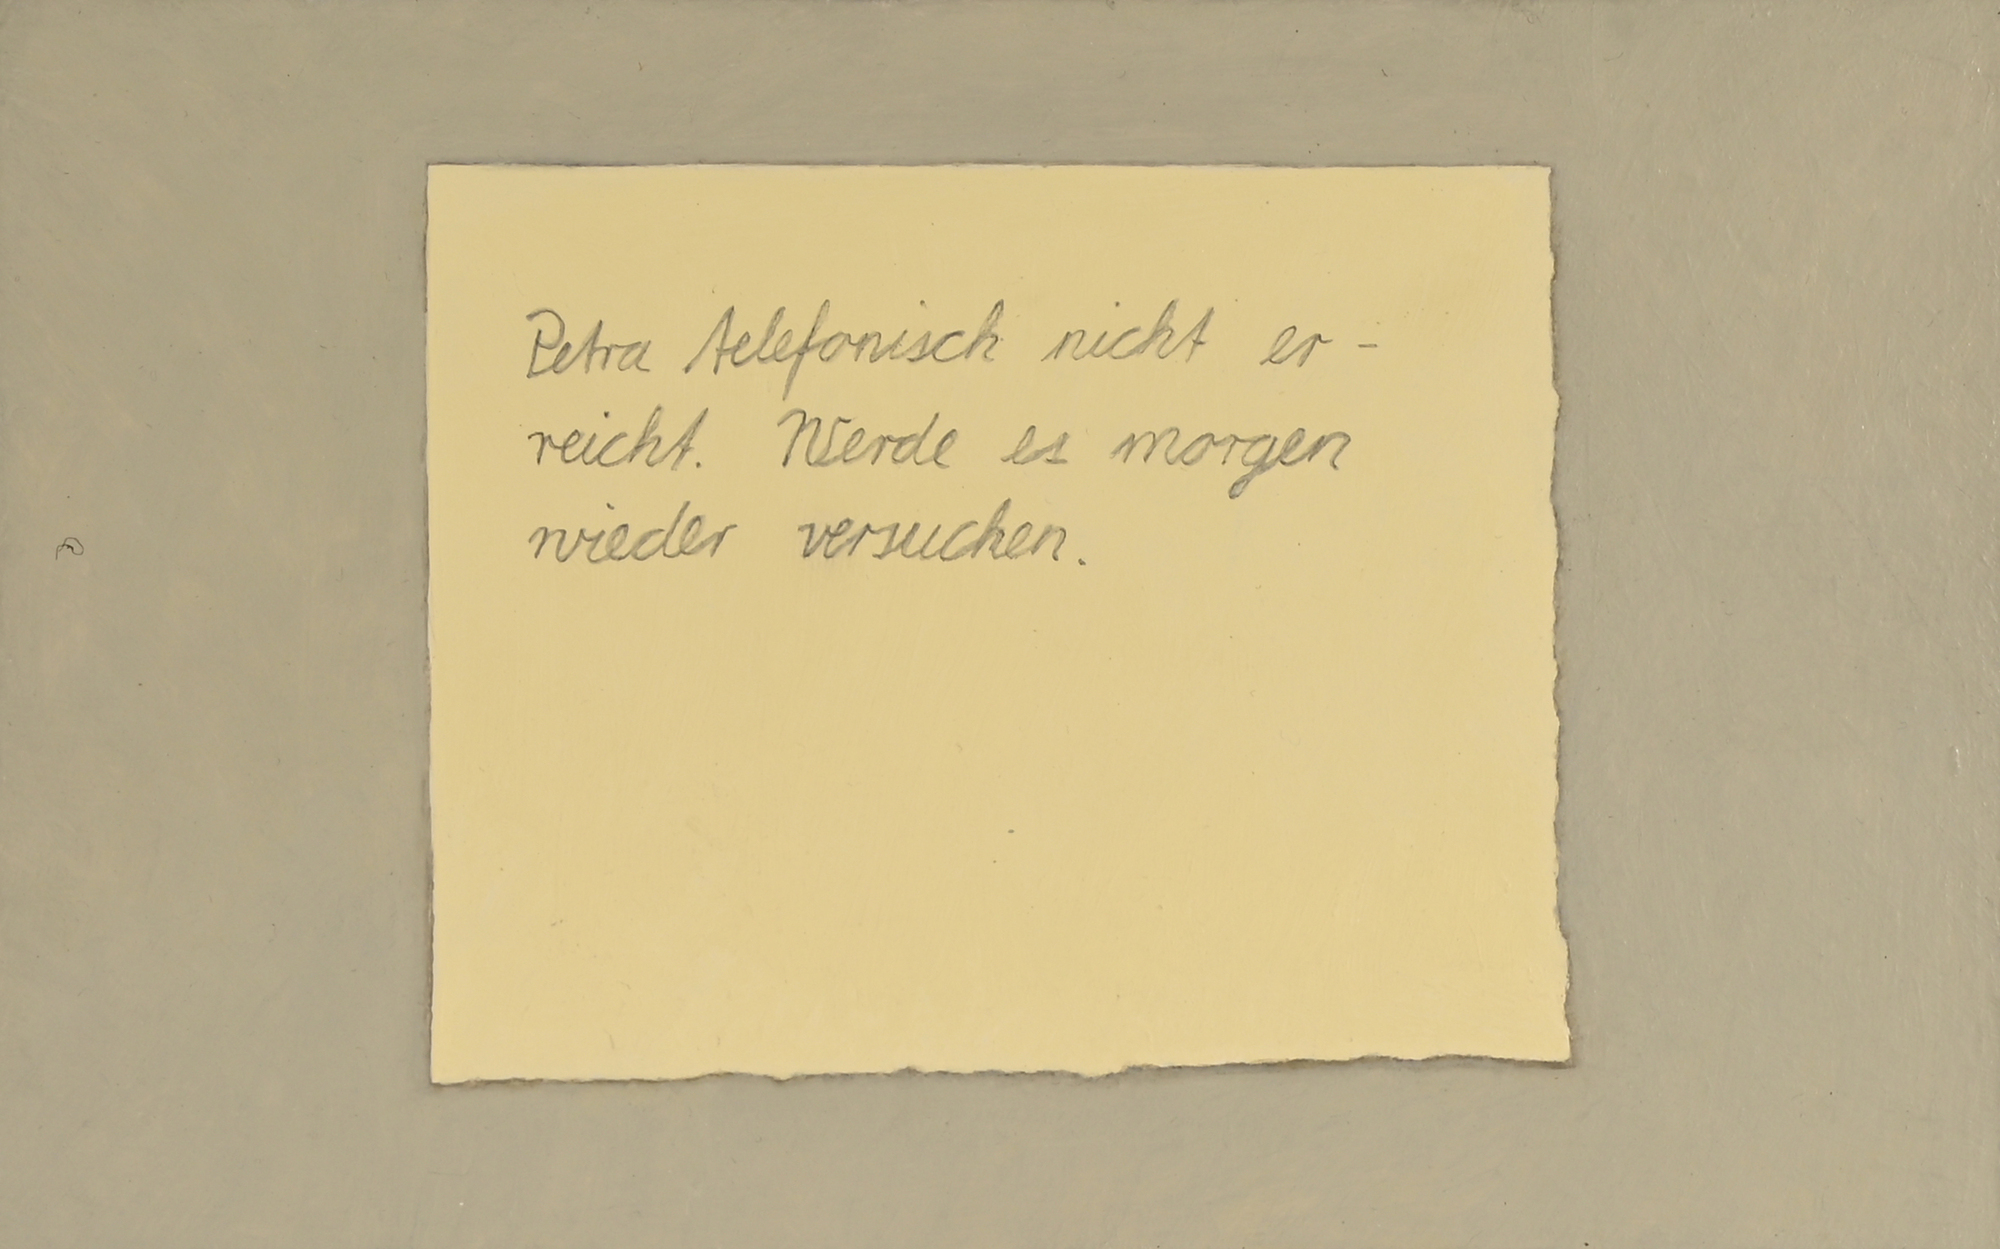 Petra telefonisch nicht er-
reicht. Werde es morgen
wieder versuchen.